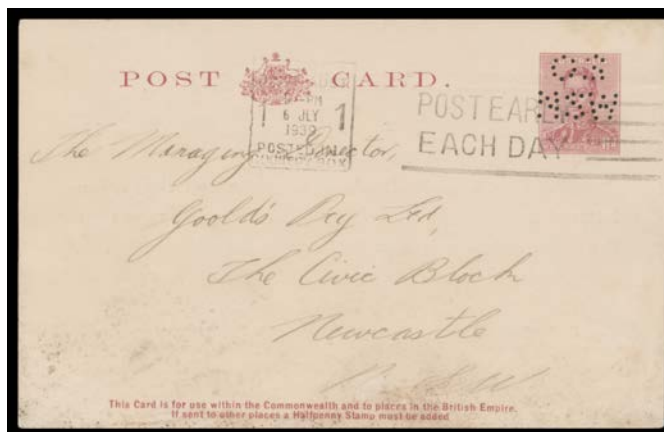 POST CARD.
OS
NSW
PM
6 JLY
1939
1 1
POSTED IN
POST EARLY
EACH DAY
The Managing Director,
Goold's Pty Ltd,
The Civic Block
Newcastle
N.S.W
This Card is for use within the Commonwealth and to places in the British Empire.
If sent to other places a Halfpenny Stamp must be added